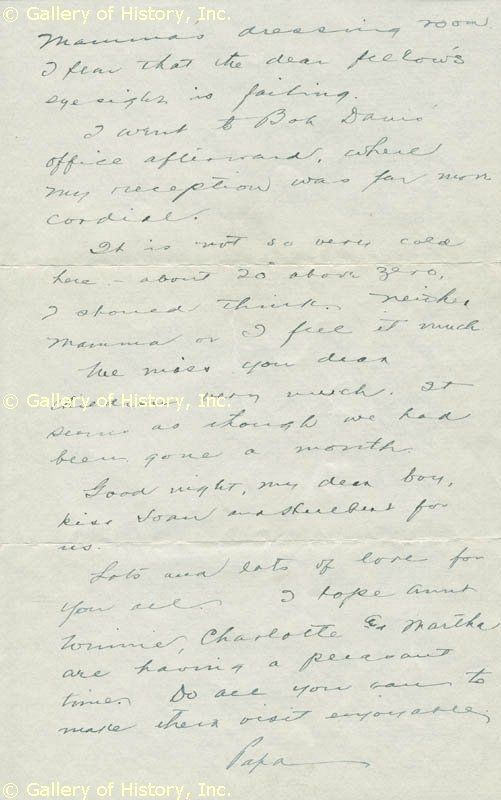 © Gallery of History, Inc.
Mamma's dressing room
I fear that the dear fellow's
eyesight is failing.
I went to Bob Davis'
office afterward, where
my reception was far more
cordial.
It is not so very cold
here - about 20° above zero,
I should think. Neither
Mamma or I feel it much
We miss you dear
very much. It
© Gallery of History, Inc.
seems as though we had
been gone a month.
Good night, my dear boy,
kiss Joan and Hulbert for
us.
Lots and lots of love for
you all. I hope Aunt
Winnie, Charlotte & Martha
are having a pleasant
time. Do all you can to
make their visit enjoyable.
Papa
© Gallery of History, Inc.